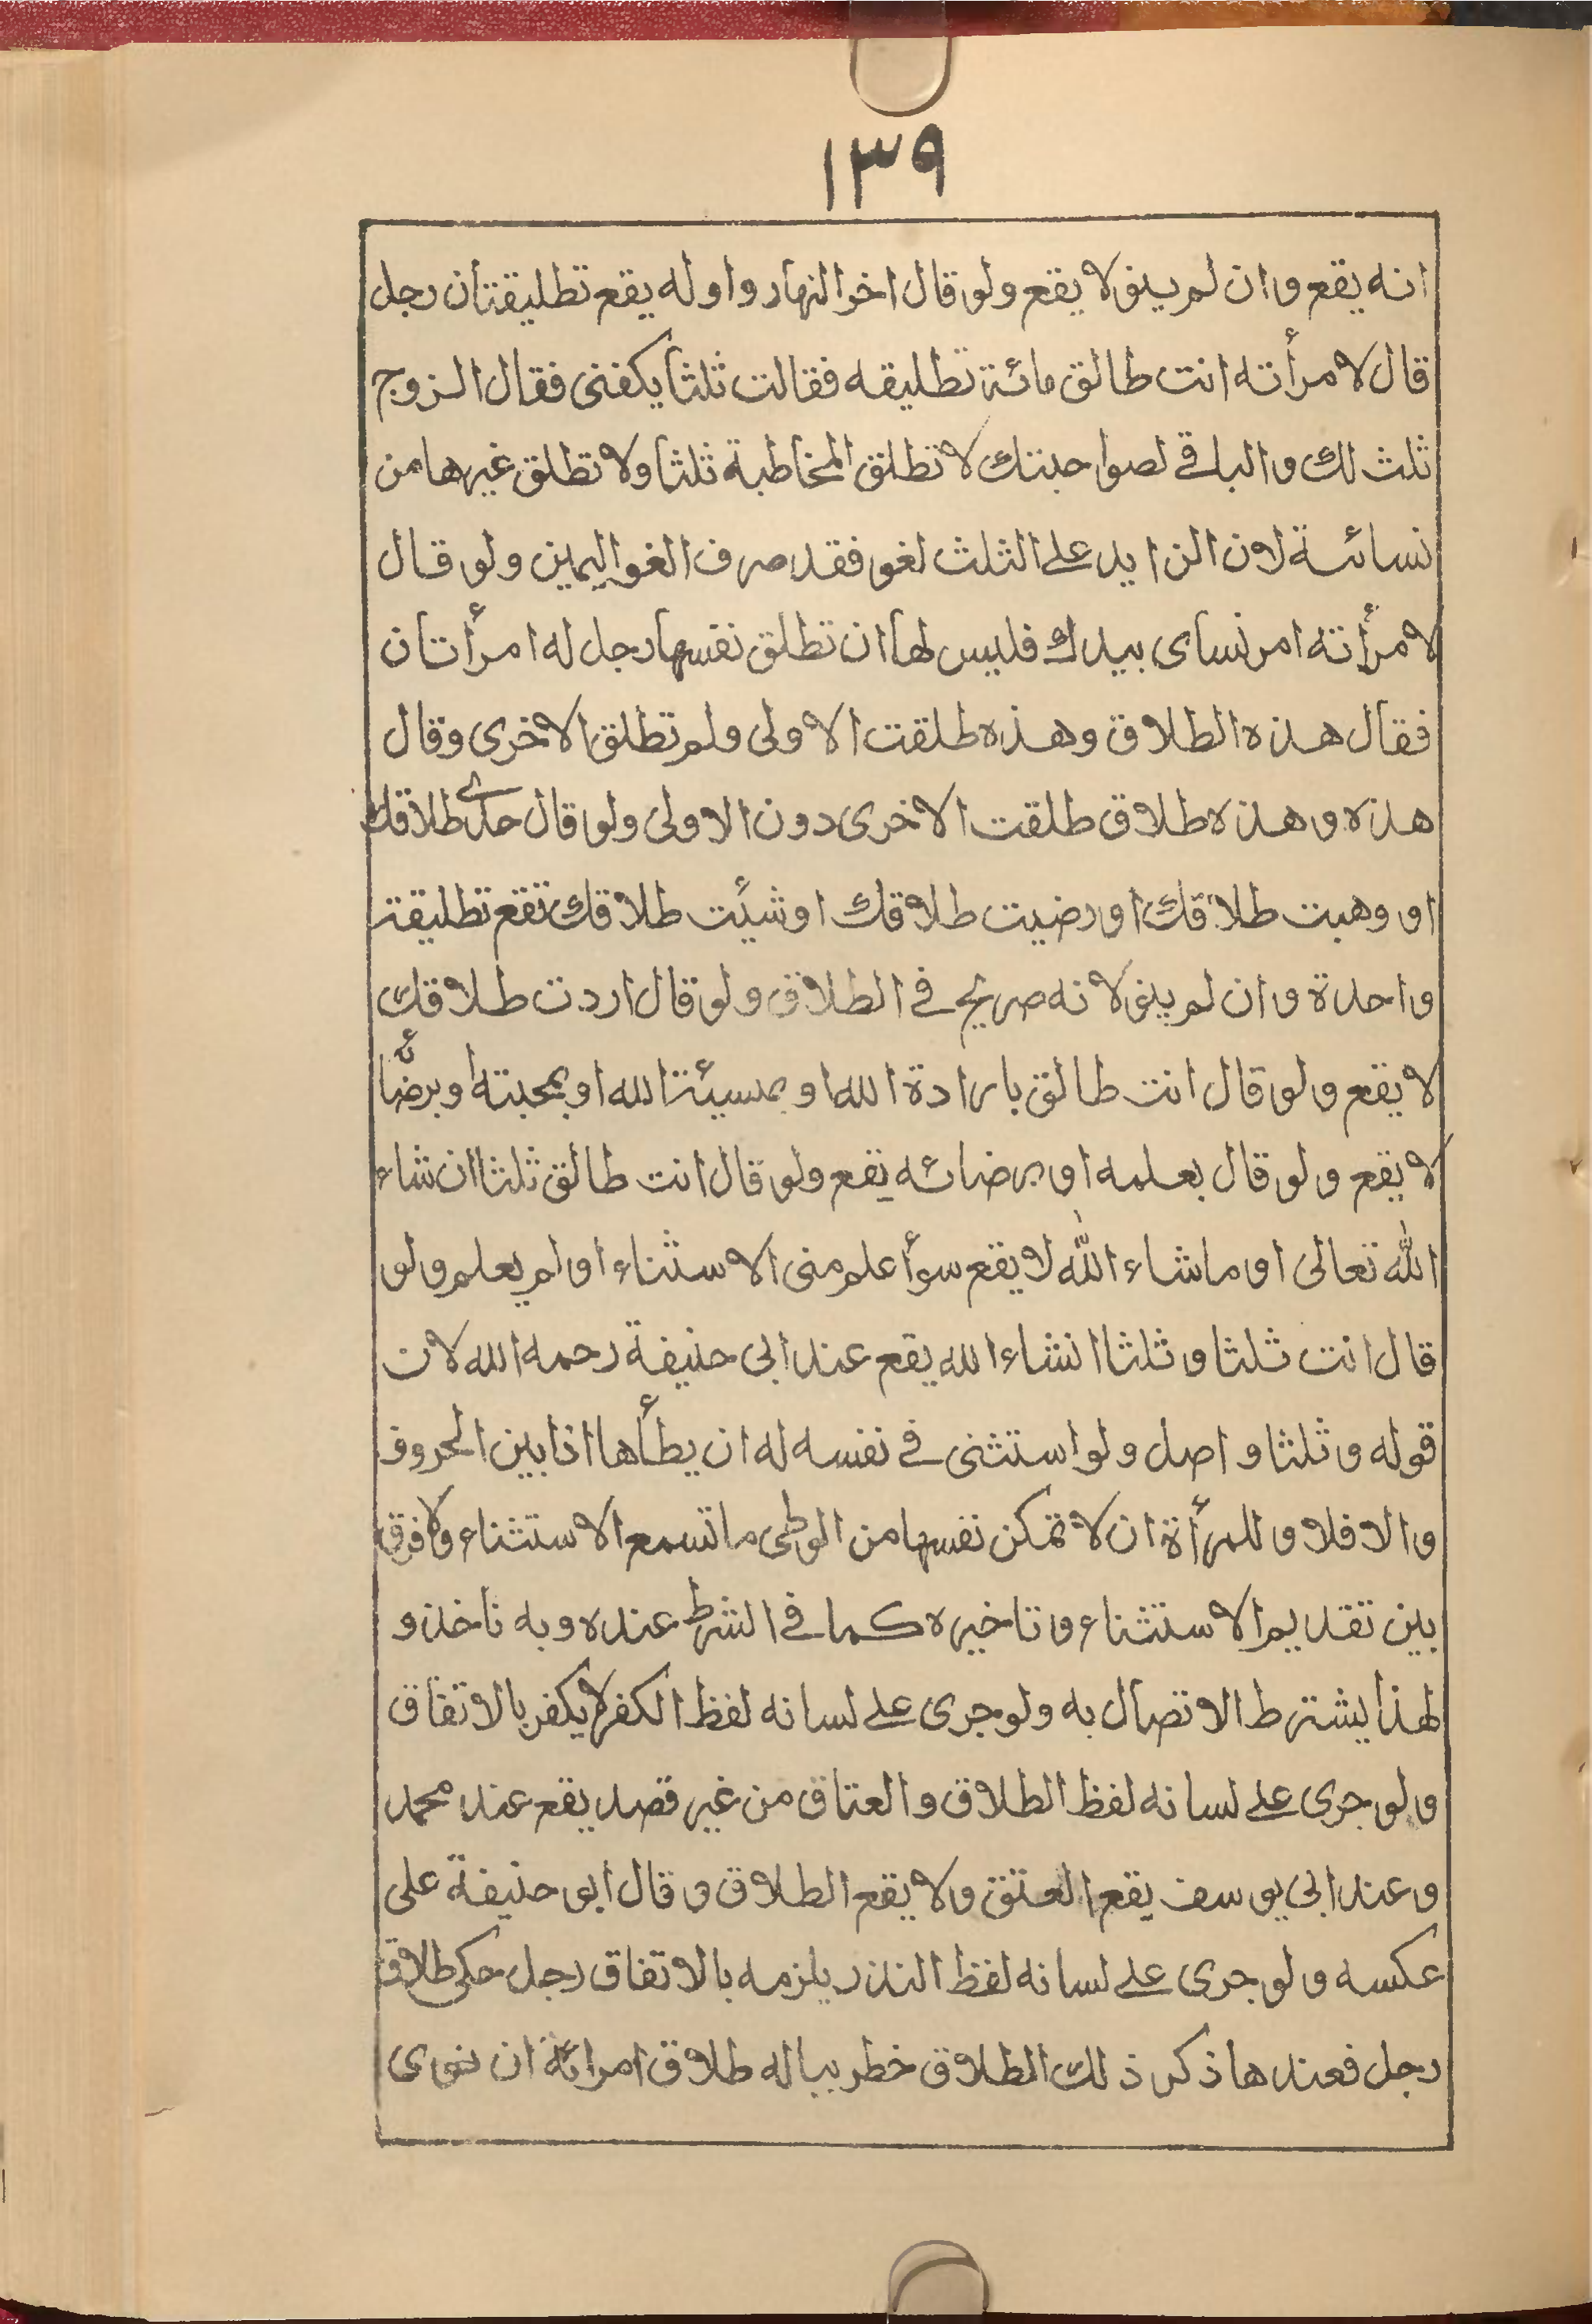 ١٣٩
انه يقع وان لم ينو لا يقع ولو قال اخر النهار واوله يقع تطليقتان رجل
قال لامرأته انت طالق مائة تطليقه فقالت ثلثا يكفنى فقال الزوج
ثلث لك والباقے لصواحبتك لا تطلق المخاطبة ثلثا ولا تطلق غيرها من
نسائة لان الزايد علے الثلث لغو فقد صرف الغو اليمين ولو قال
لامرأته امر نساى بيدك فليس لها ان تطلق نفسها رجل له امرأتان
فقال هذه الطلاق وهذه طلقت الاولى ولم تطلق الاخرى وقال
هذه وهذه طلاق طلقت الاخرى دون الاولى ولو قال طلاقك
او وهبت طلاقك او رضيت طلاقك او شئت طلاقك تقع تطليقة
واحدة وان لم ينو لانه صريح فے الطلاق ولو قال اردت طلاقك
لا يقع ولو قال انت طالق بارادة الله او بمسيئة الله او بمحبته او برضائه
لا يقع ولو قال بعلمه او برضائه يقع ولو قال انت طالق ثلثا ان شاء
الله تعالى او ما شاء الله لا يقع سوأ علم منى الاستثناء او لم يعلم ولو
قال انت ثلثا وثلثا انشاء الله يقع عند ابى حنيفة رحمه الله لان
قوله وثلثا واصل ولو استثنى فے نفسه له ان يطأها اذا بين الحروف
والا فلا وللمرأة ان لا تمكن نفسها من الوطى ما تسمع الاستثناء ولا فرق
بين تقديم الاستثناء وتاخيره كما فے الشرط عنده وبه ناخذ و
لهذا يشترط الاتصال به ولو جرى علے لسانه لفظ الكفر لا يكفر بالاتفاق
ولو جرى علے لسانه لفظ الطلاق والعتاق من غير قصد يقع عند محمد
وعند ابى يوسف يقع العتق ولا يقع الطلاق وقال ابو حنيفة على
عكسه ولو جرى علے لسانه لفظ النذر يلزمه بالاتفاق رجل حكى طلاق
رجل فعندها ذكر ذلك الطلاق خطر بباله طلاق امرائة ان نوى